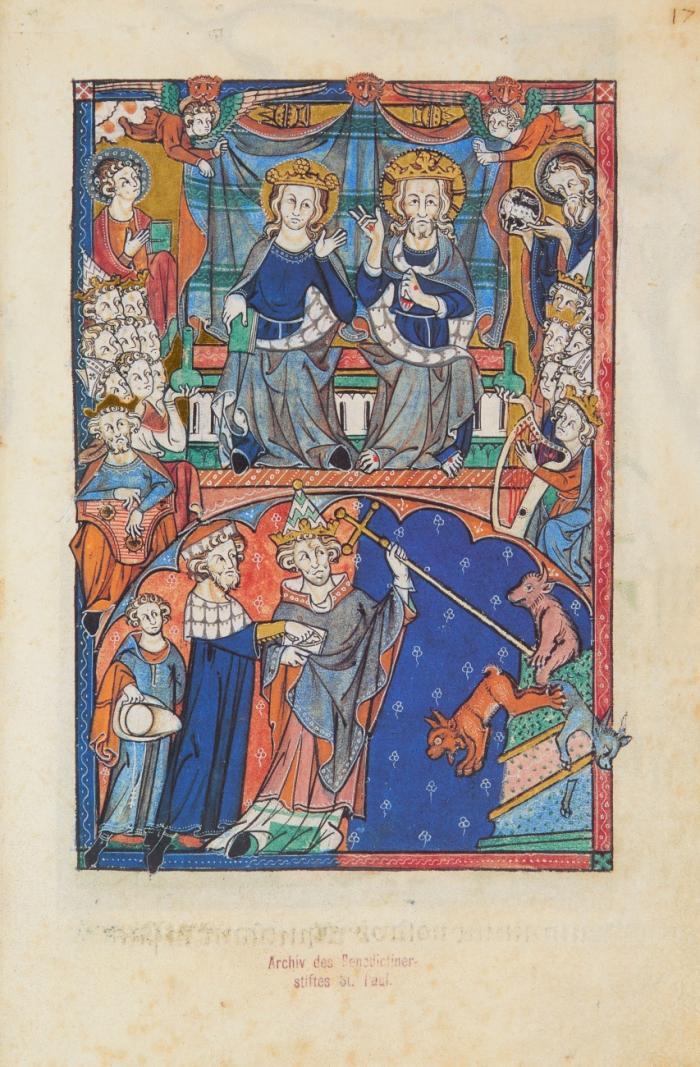 17
Archiv des Benedictiner-
stiftes St. Paul.